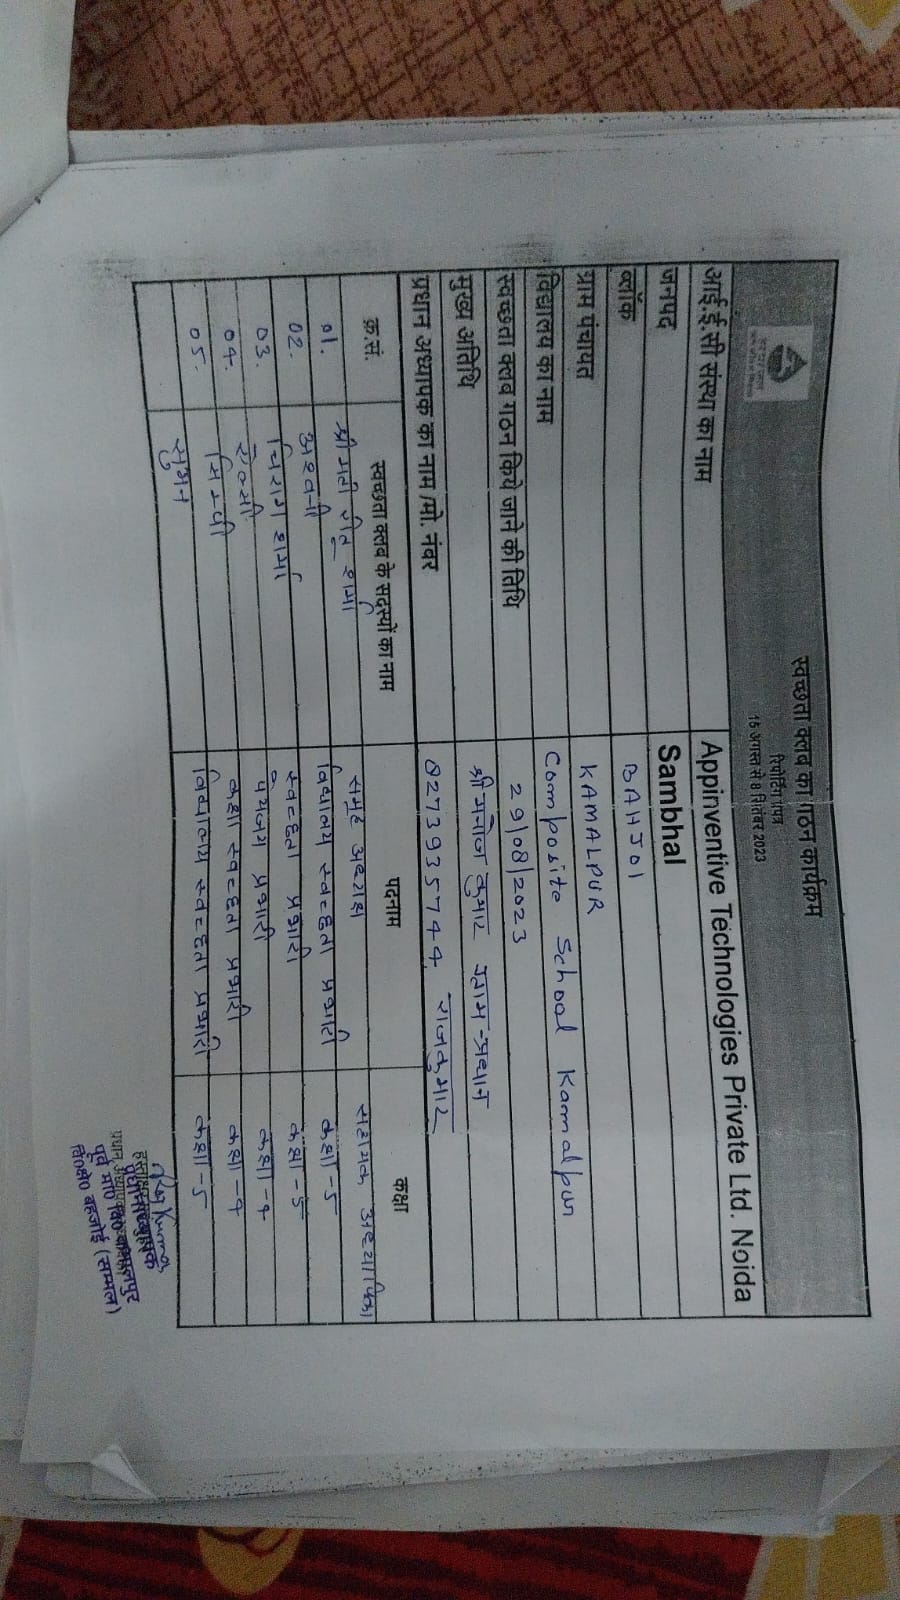 स्वच्छता क्लब का गठन कार्यक्रम
रिपोर्टिंग प्रपत्र
15 अगस्त से 8 सितंबर 2023
आई.ई.सी संस्था का नाम Appinventive Technologies Private Ltd. Noida
जनपद Sambhal
ब्लॉक BAHJOI
ग्राम पंचायत KAMALPUR
विद्यालय का नाम Composite School Kamalpur
स्वच्छता क्लब गठन किये जाने की तिथि 29/08/2023
मुख्य अतिथि श्री मनोज कुमार ग्राम-प्रधान
प्रधान अध्यापक का नाम /मो. नंबर 8273935744 राजकुमार
क्र.सं. स्वच्छता क्लब के सदस्यों का नाम पदनाम कक्षा
श्रीमती रीतू शर्मा समूह सहायक अध्यापिका
01. अश्वनी विद्यालय स्वच्छता प्रभारी कक्षा-5
02. चिराग शर्मा स्वच्छता प्रभारी कक्षा-5
03. प्रभारी कक्षा-4
04. सिमी कक्षा स्वच्छता प्रभारी कक्षा-4
05. सुमन विद्यालय स्वच्छता प्रभारी कक्षा-5
Raj Kumar
पूर्व मा० वि० कमालपुर
वि०क्षे० बहजोई (सम्भल)